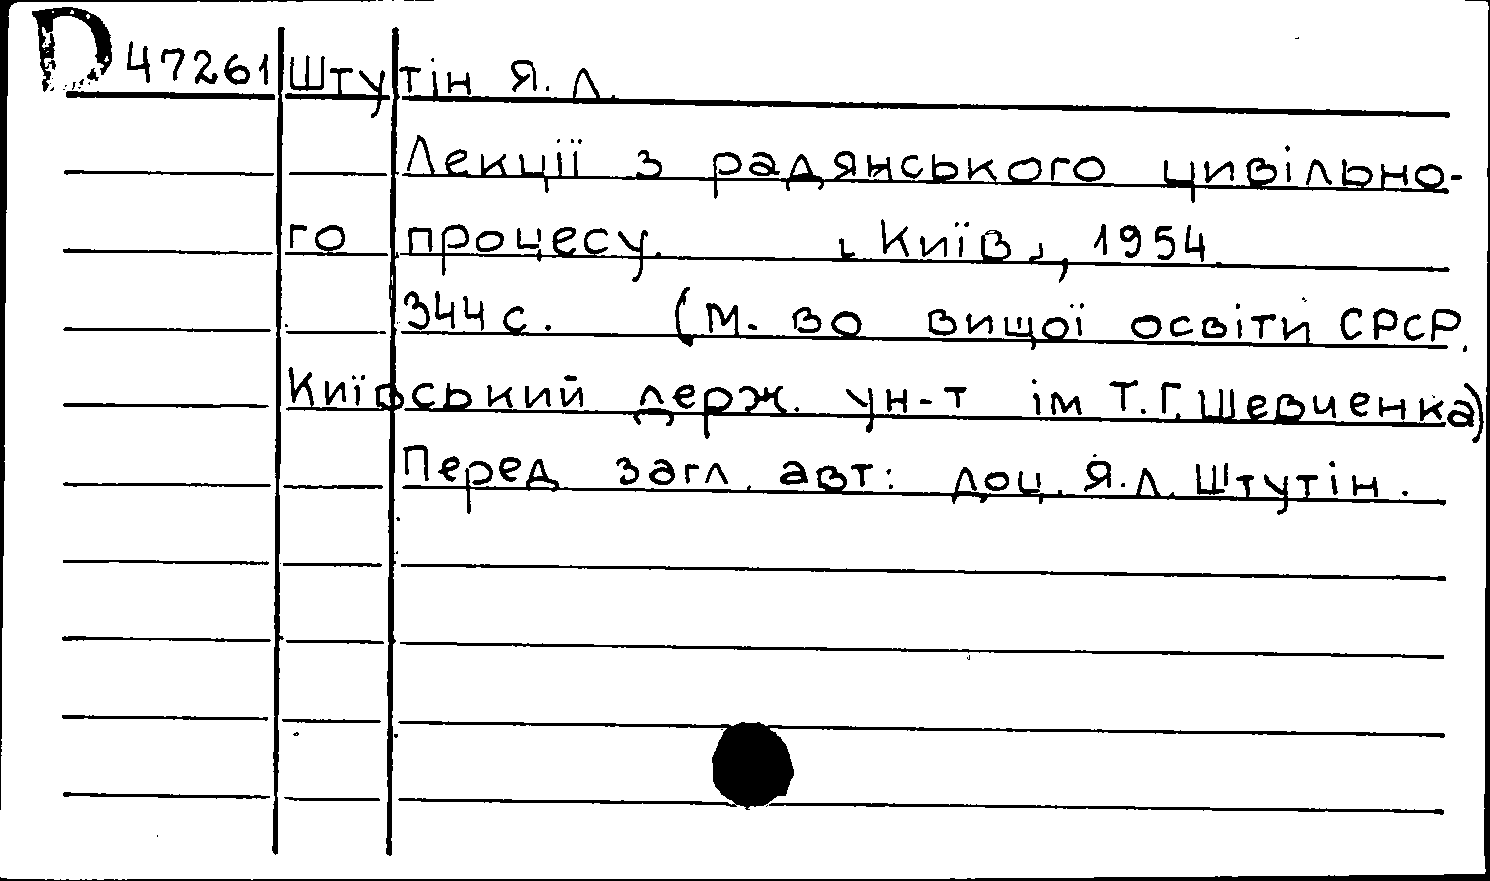 D 47261 Штутін Я. Л.
Лекції з радянського цивільно-
го процесу. [Київ], 1954.
344 с. (М-во вищої освіти СРСР.
Київський держ. ун-т ім Т.Г. Шевченка)
Перед загл. авт: доц. Я.Л. Штутін.